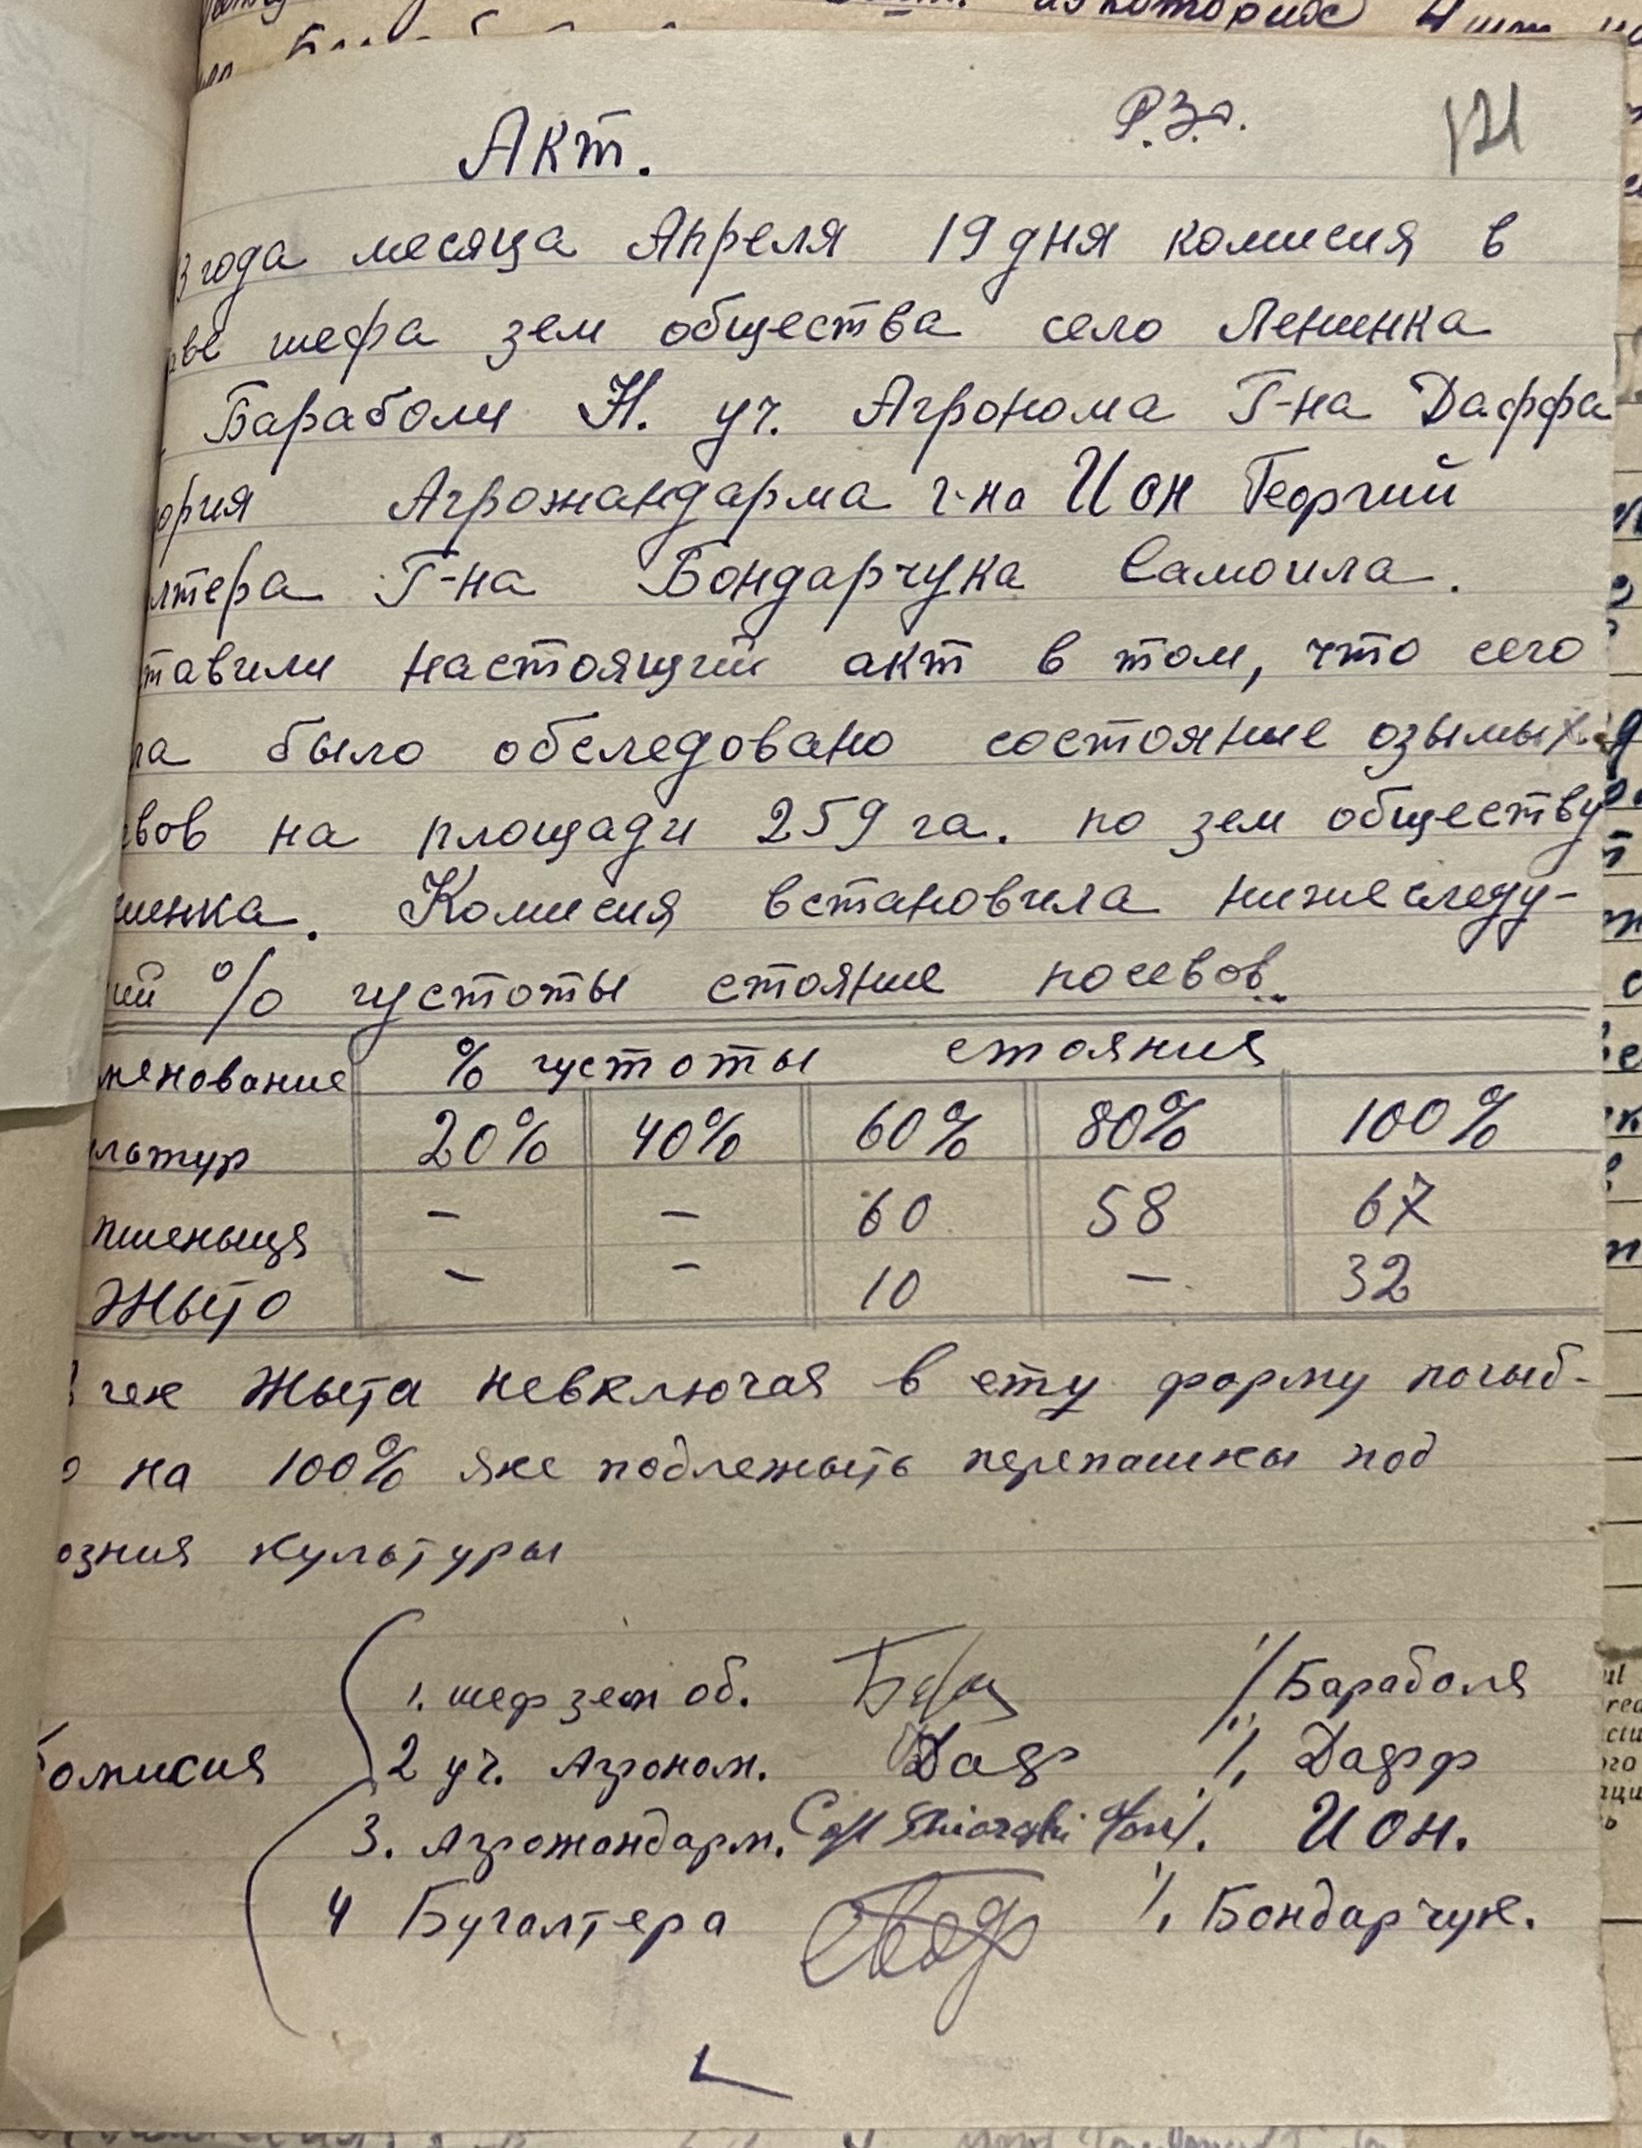 Акт.
Р.З.
121
3 года месяца Апреля 19 дня комисия в
аве шефа зем общества село Ленинка
Бараболи Н. уч. Агронома Г-на Даффа
ория Агрожандарма г-на Ион Георгий
лтера Г-на Бондарчука Самоила.
тавили настоящий акт в том, что сего
ла было обследовано состояние озымых
вов на площади 259 га. по зем обществу
нинка. Комисия встановила нижеследу-
ий % густоты стояние посевов.
менование % густоты стояния
льтур 20% 40% 60% 80% 100%
пшеныця - - 60 58 67
Жыто - - 10 - 32
гек Жыта невключая в ету форму погыб-
о на 100% яке подлежыть перепашкы под
озния культуры
1. шеф зем об. / Бараболя
омисия 2 уч. Агроном. Дафф /, Дафф
3. Агрожандарм. /. Ион.
4 Бугалтера /, Бондарчук.